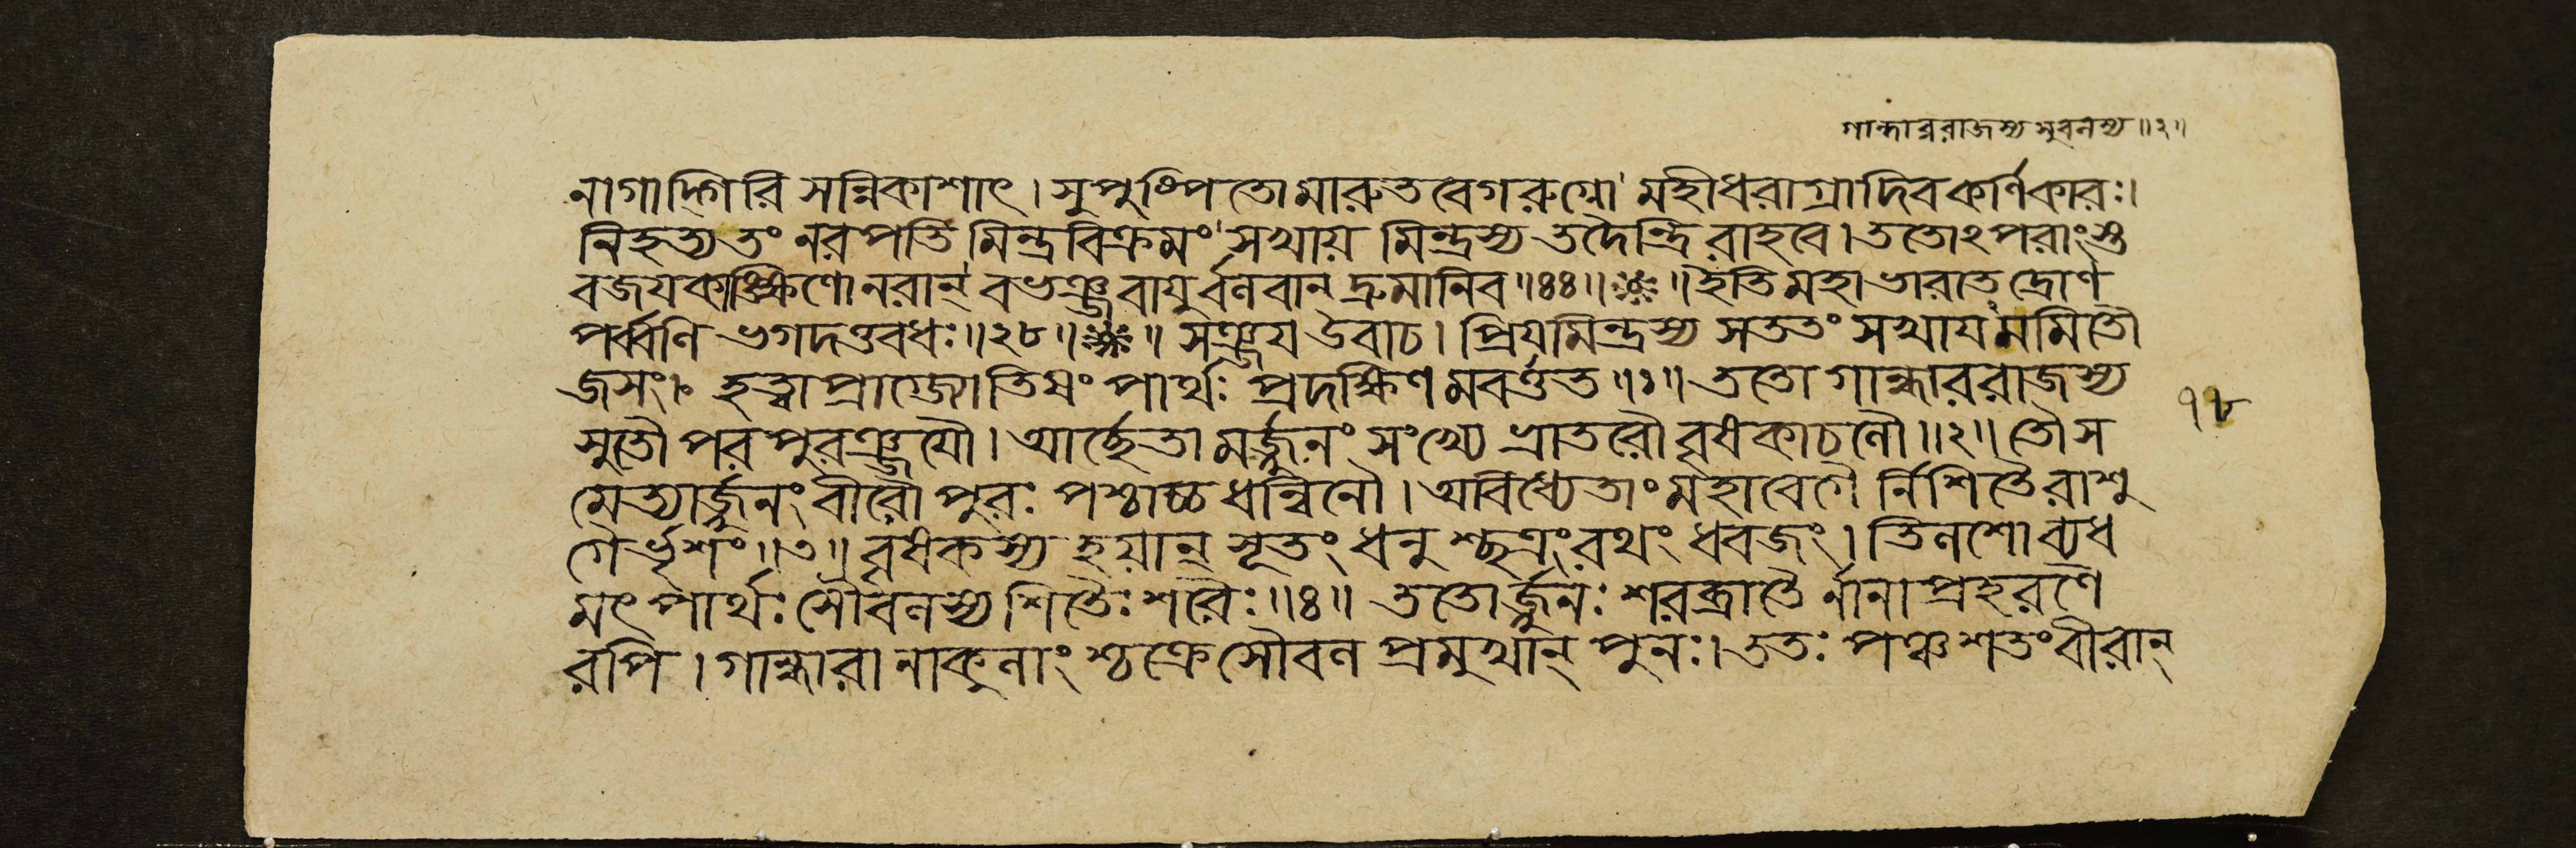 গান্ধাররাজস্য সুবলস্য॥২॥
নাগাদ্গিরি সন্নিকাশাৎ। সুপুষ্পিতো মারুতবেগরুগ্নো মহীধরাগ্রাদিব কর্ণিকারঃ।
নিহত্য তং নরপতি মিন্দ্রবিক্রমং সখায় মিন্দ্রস্য তদৈন্দ্রি রাহবে। ততোঽপরাংস্তু
বজয়কাঙ্ক্ষিণো নরান্ বভঞ্জ বায়ুর্বলবান্ দ্রুমানিব॥৪৪॥ ॥ ইতি মহাভারাতে দ্রোণ
পর্ব্বণি ভগদত্তবধঃ॥২৮॥ ॥ সঞ্জয় উবাচ। প্রিয়মিন্দ্রস্য সততং সখায় মমিতৌ
জসং। হত্বা প্রাগ্জ্যোতিষং পার্থঃ প্রদক্ষিণ মবর্ত্তত॥১॥ ততো গান্ধাররাজস্য
সুতৌ পরপুরঞ্জয়ৌ। আর্চ্ছেতা মর্জ্জুনং সংখ্যে ভ্রাতরৌ বৃষকাচলৌ॥২॥ তৌ স
মেত্যার্জ্জুনং বীরৌ পুরঃ পশ্চাচ্চ ধন্বিনৌ। অবিধ্যেতাং মহাবেগৈ র্নিশিতৈরাশু
গৈর্ভৃশং॥৩॥ বৃষকস্য হয়ান্ সূতং ধনুশ্ছত্রং রথং ধ্বজং। তিলশো ব্যধ
মৎ পার্থঃ সৌবলস্য শিতৈঃ শরৈঃ॥৪॥ ততোর্জ্জুনঃ শরব্রাতৈ র্নানা প্রহরণৈ
রপি। গান্ধারা নাকুলাংশ্চক্রে সৌবল প্রমুখান্ পুনঃ। ততঃ পঞ্চশতং বীরান্